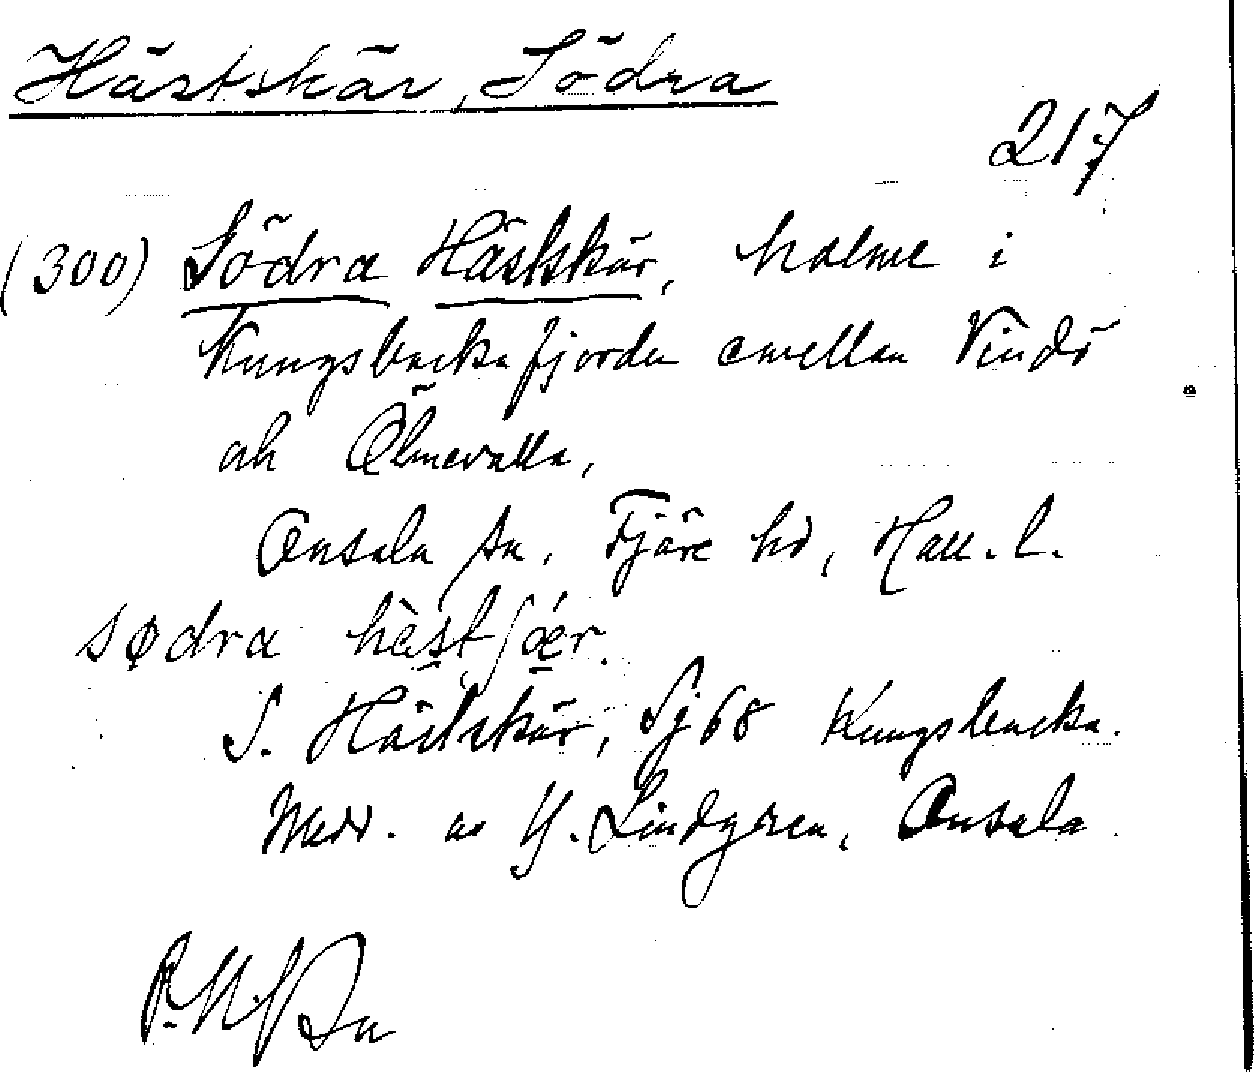 Hästskär, Södra
217
(300) Södra Hästskär, holme i
Kungsbackafjorden emellan Vindö
och Ölmevalla,
Onsala sn, Fjäre hd, Hall. l.
sødra hὲstʃǽr.
S. Hästskär, Sj 68 Kungsbacka.
Medd. av Hj. Lindgren, Onsala.